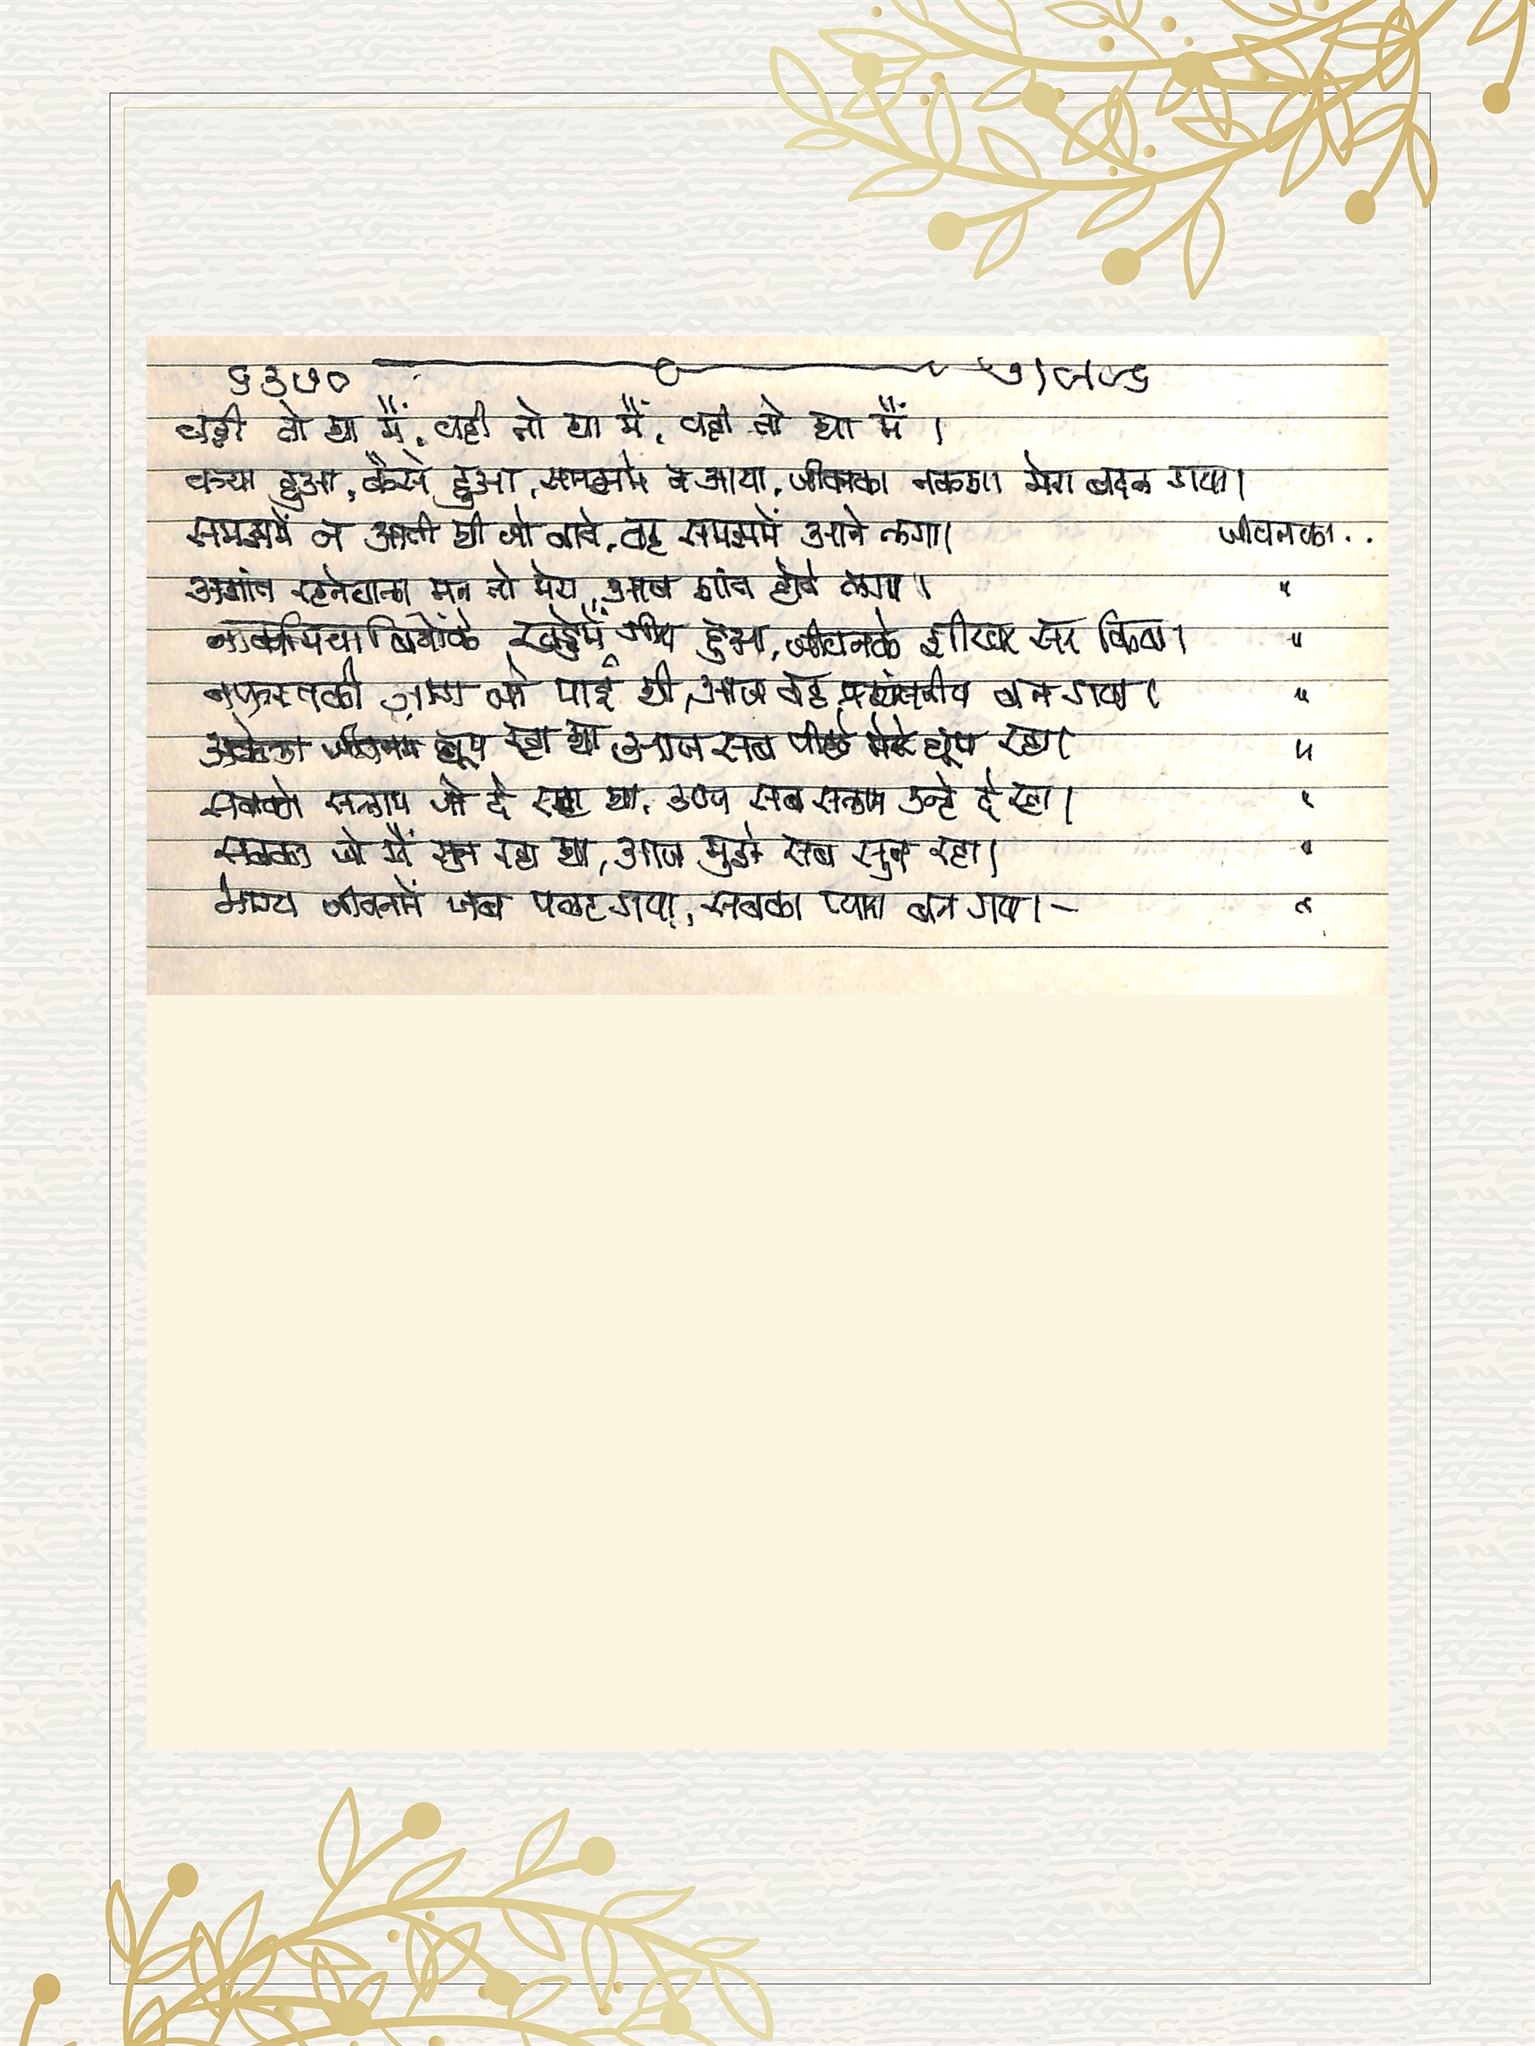 ६३७०
वही तो था मैं, वही तो था मैं, वही तो था मैं ।
क्या हुआ, कैसे हुआ, समझमे न आया, जीवनका नकशा मेरा बदल गया।
समझमें न आती थी जो बाते, वह समझमें आने लगा। जीवनका..
अशांत रहनेवाला मन तो मेरा, अब शांत होने लगा। "
खड्डेमें हुआ, जीवनके शीखर सर किया। "
नफरतकी जो पाई थी, आज वह बन गया। "
अकेला जीवनमें घूम रहा था, आज सब पीछे मेरे घूम रहा। "
सबको सलाम जो दे रहा था, आज सब सलाम उन्हे दे रहा। "
सबका जो मैं सुन रहा था, आज मुझे सब सुन रहा। "
भाग्य जीवनमें जब पलट गया, सबका प्यारा बन गया। - "